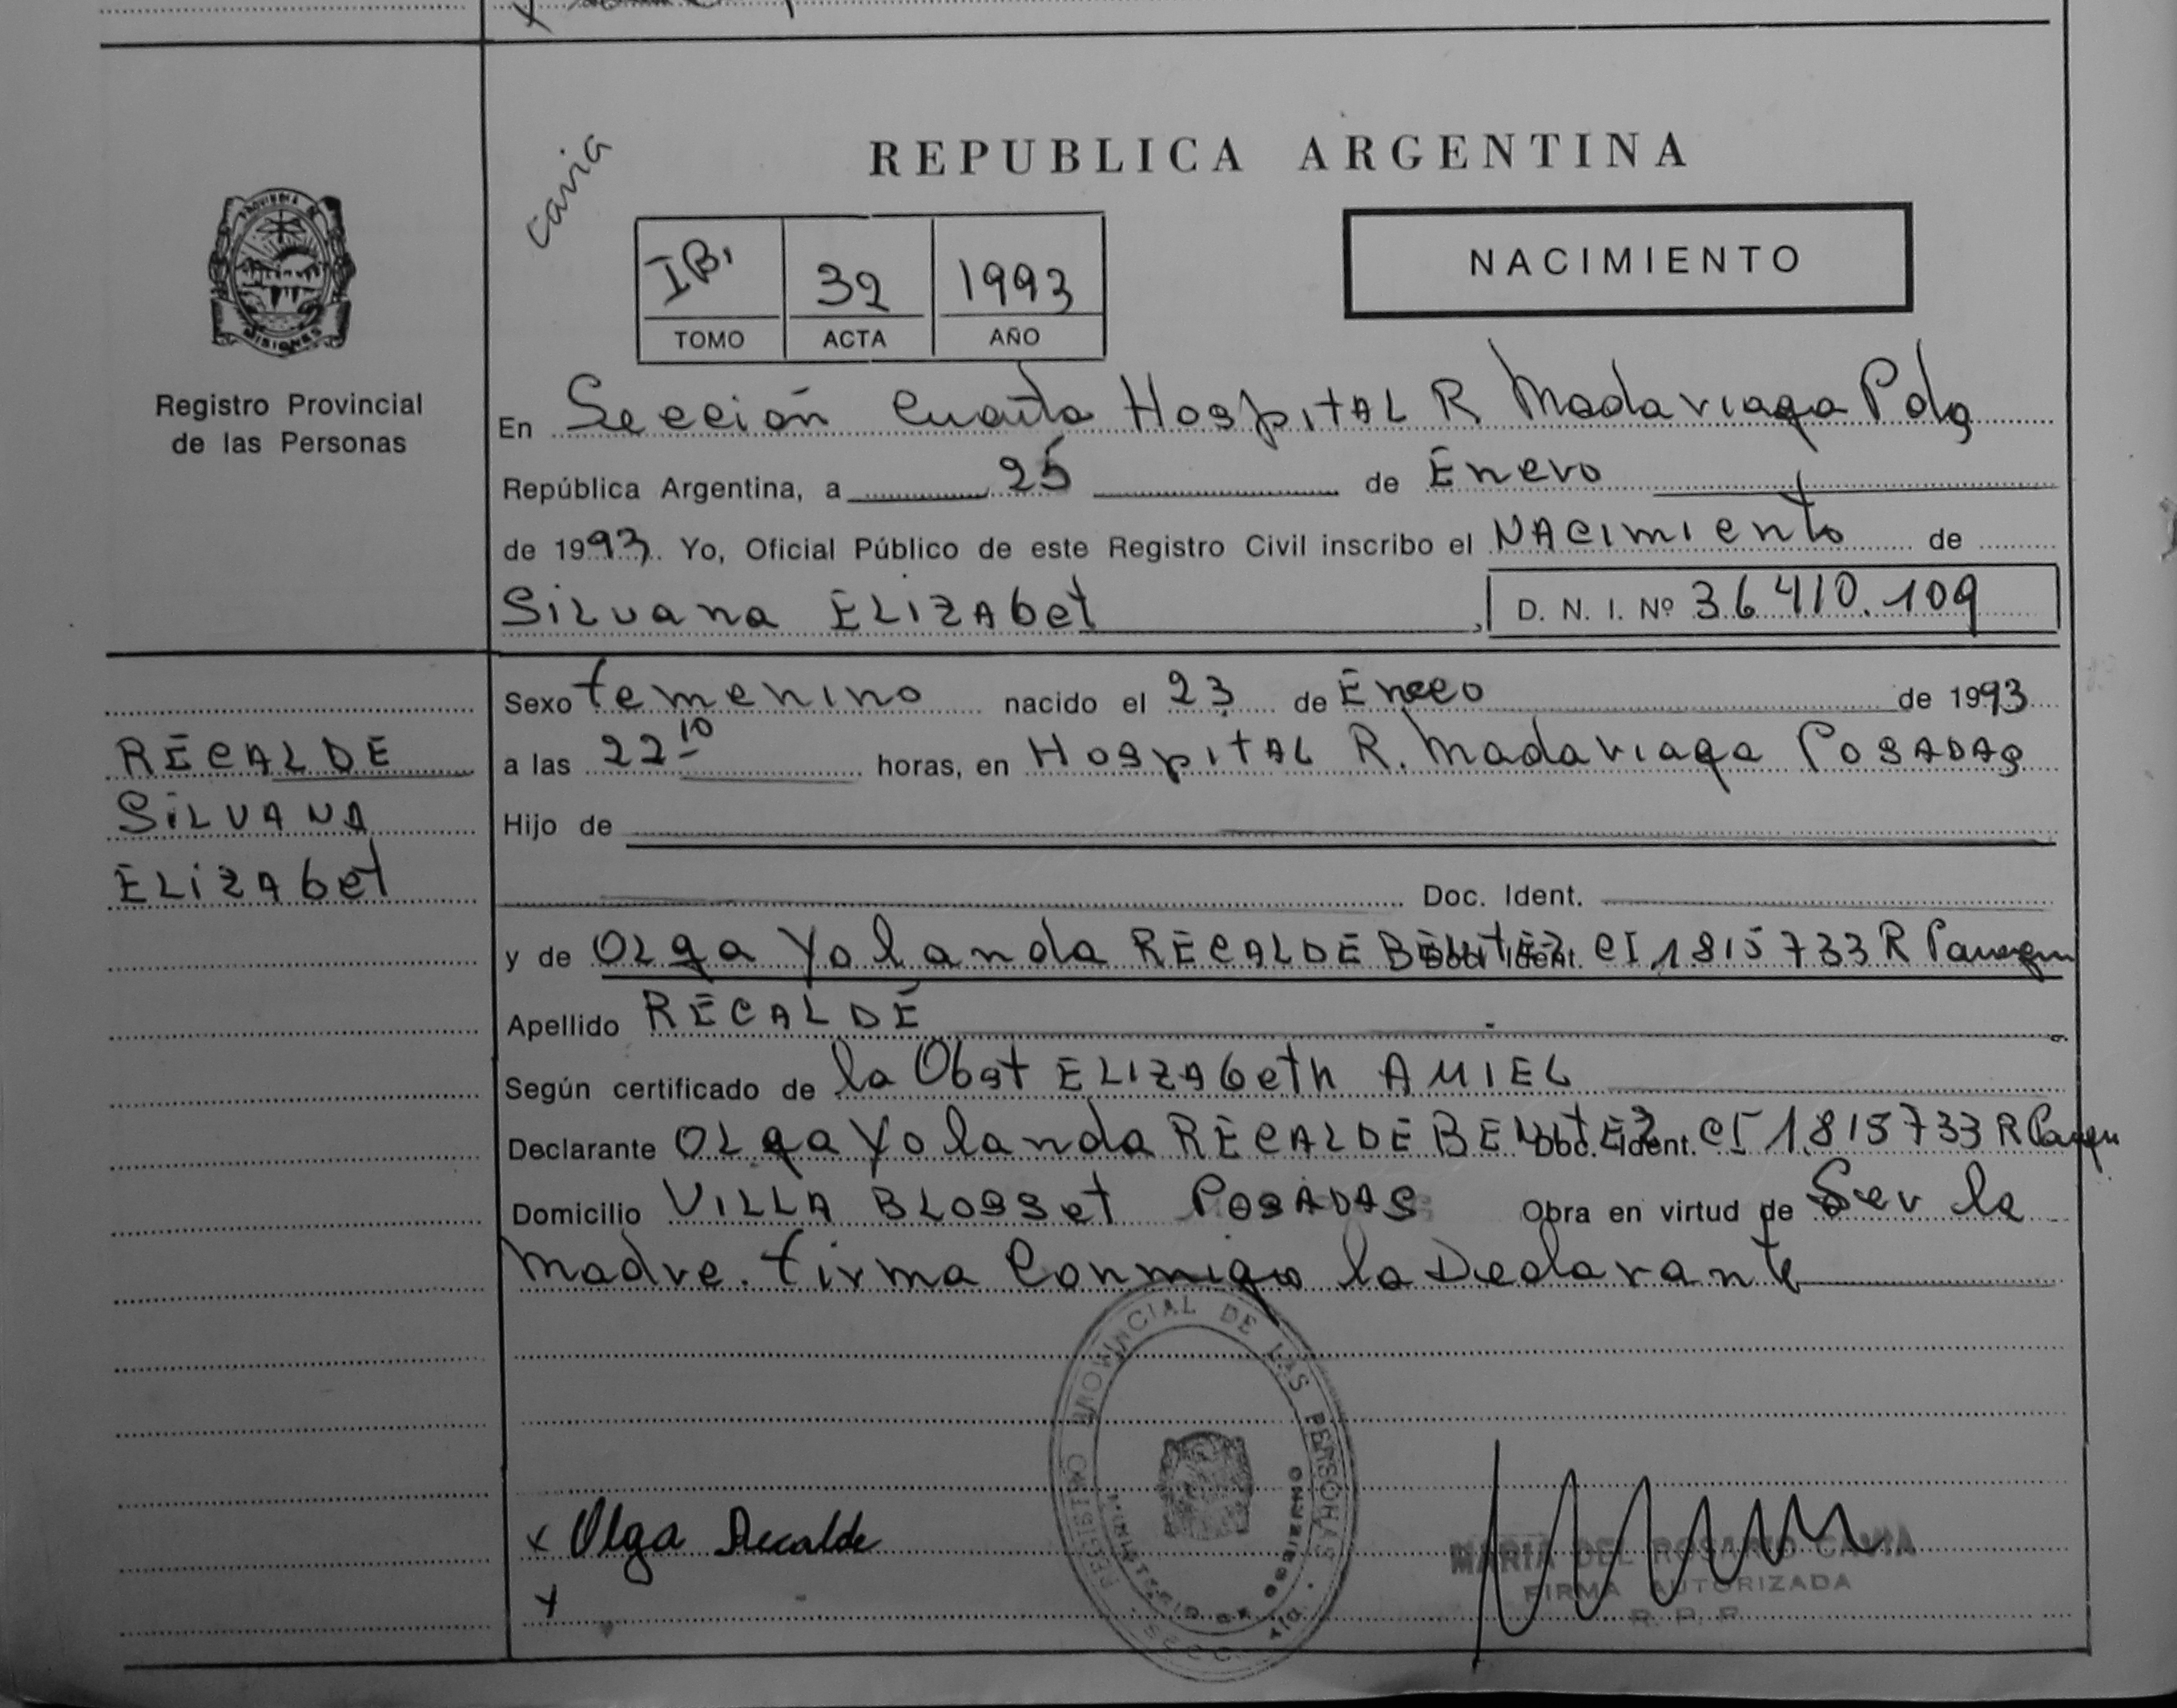 Cavia
REPUBLICA ARGENTINA
PROVINCIA DE
MISIONES
Registro Provincial
de las Personas
IB. 32 1993
TOMO ACTA AÑO
NACIMIENTO
En Sección Cuarta Hospital R Madariaga Pdas
República Argentina, a 25 de Enero
de 1993. Yo, Oficial Público de este Registro Civil inscribo el NACimiento de
SiLvana ELIZAbet, D. N. I. Nº 36410.109
RECALDE
SiLVANA
ELiZAbet
Sexo femenino nacido el 23 de Enero de 1993
a las 22 10 horas, en HospitAL R. Madariaga POSADAS
Hijo de
Doc. Ident.
y de OLga Yolanda RECALDE BENITEZ Doc. Ident. CI 1815733 R
Apellido RECALDE
Según certificado de la Obst ELIZAbeth AMIEL
Declarante OLga Yolanda RECALDE BENITEZ Doc. Ident. CI 1.815733 R
Domicilio VILLA BLOSSet POSADAS Obra en virtud de Ser la
madre. firma Conmigo la Declarante
REGISTRO PROVINCIAL DE LAS PERSONAS
MINISTERIO DE GOBIERNO
x Olga Recalde
x
MARIA DEL ROSARIO CAVIA
FIRMA AUTORIZADA
R. P. P.